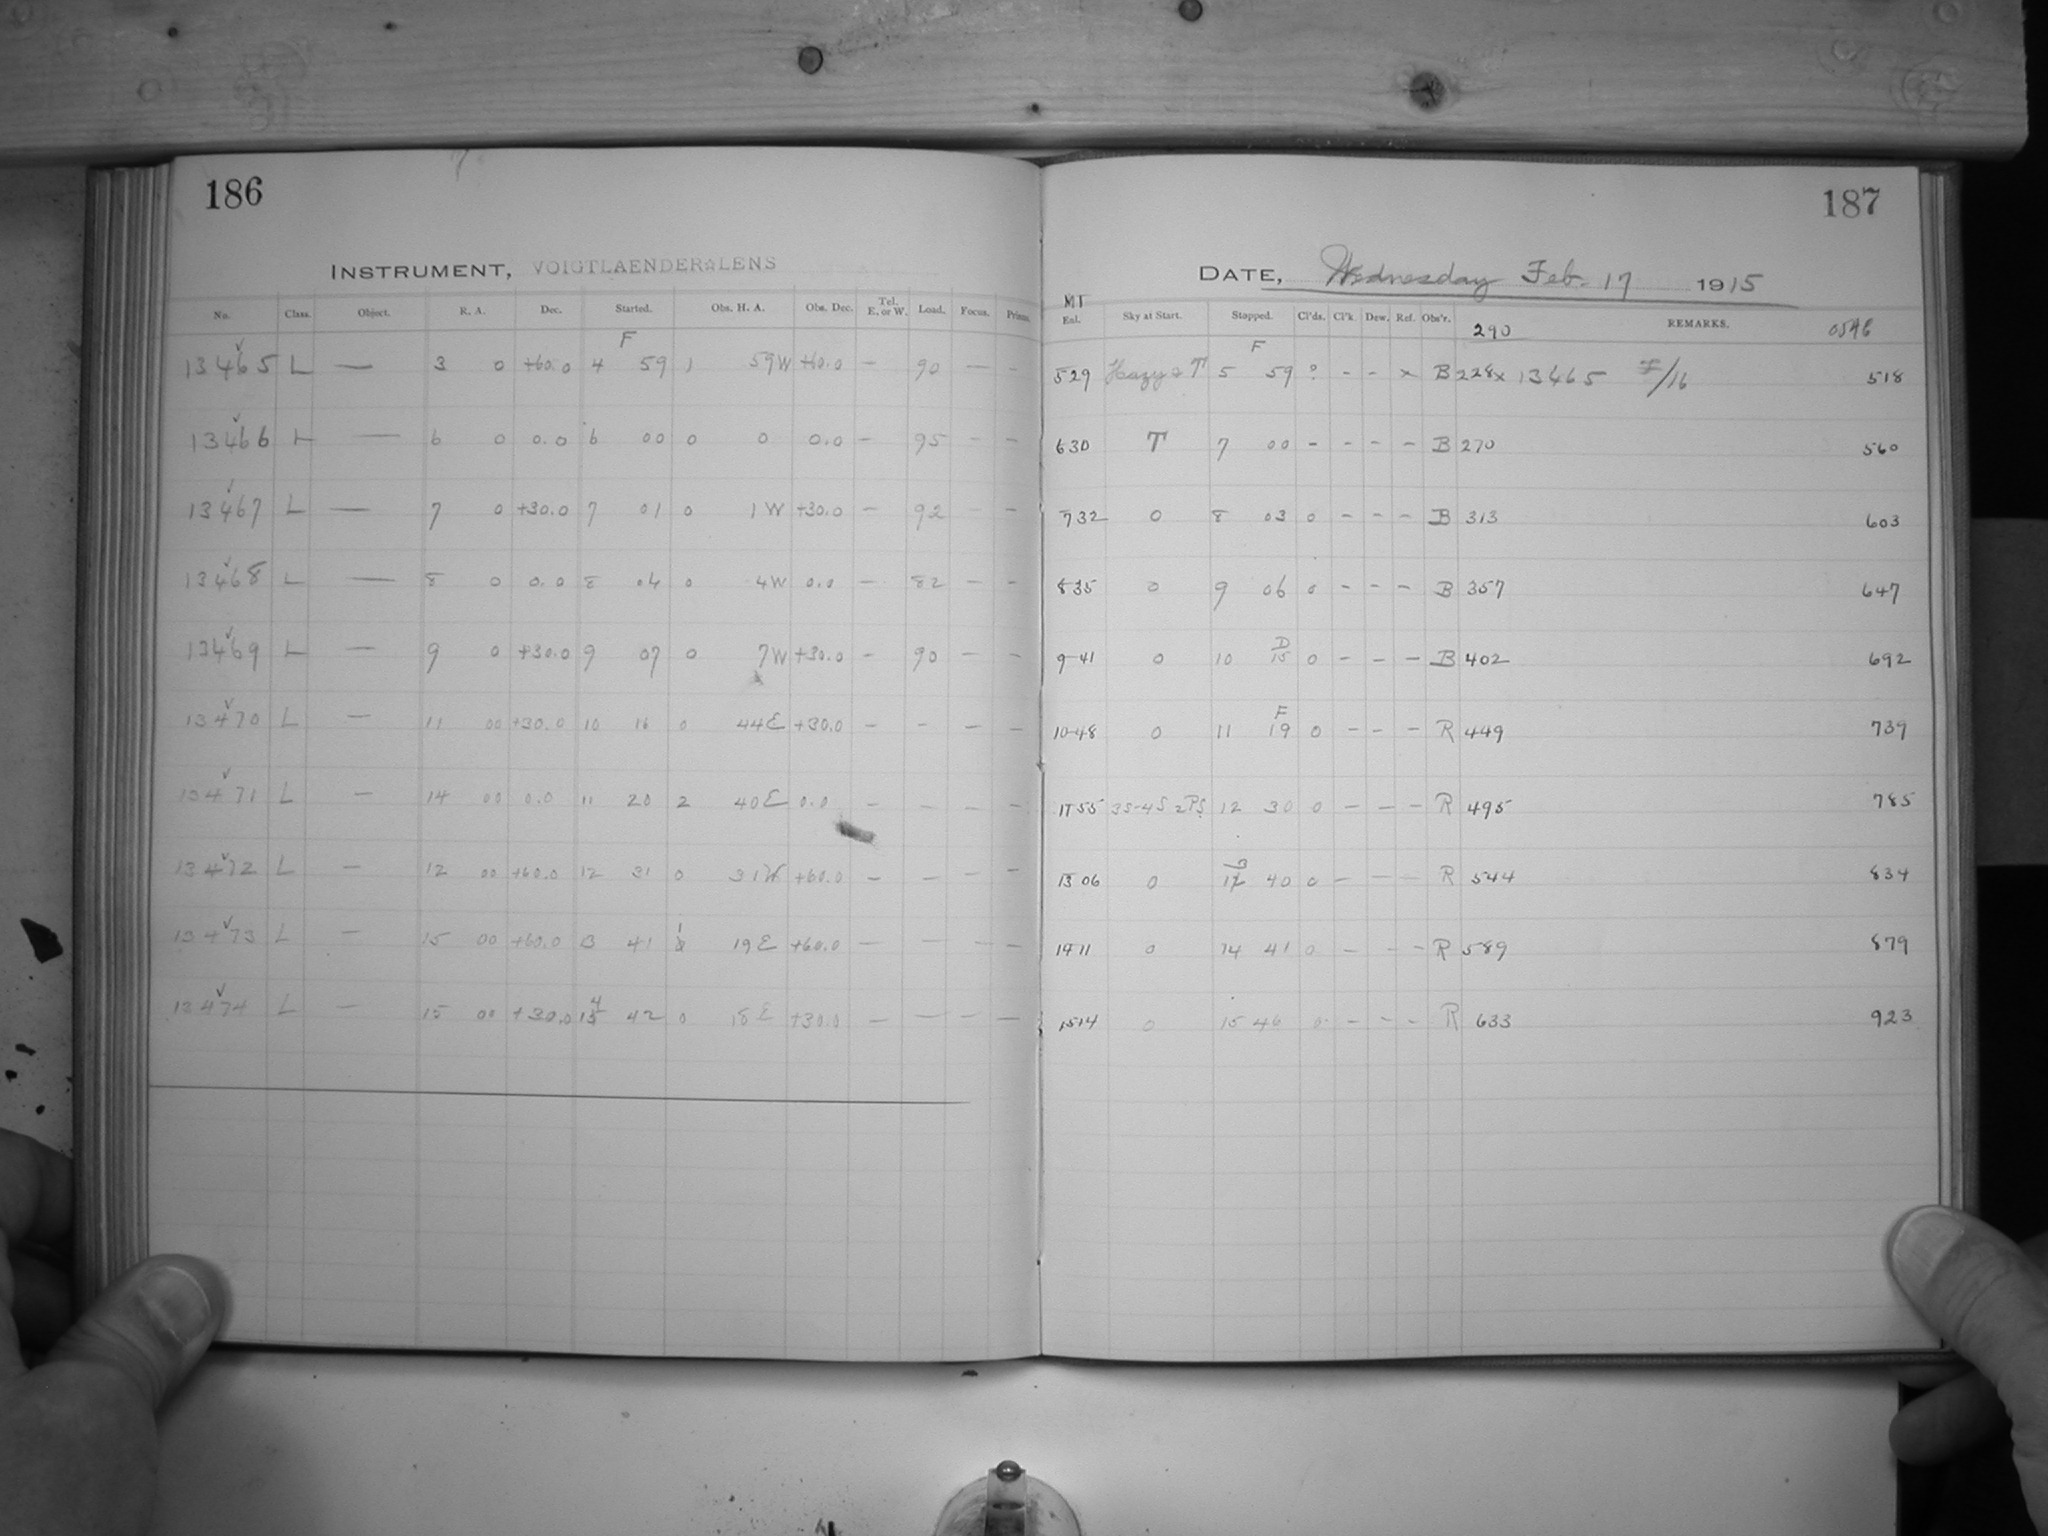 186
INSTRUMENT, VOIGTLAENDER LENS
No. Class. Object. R. A. Dec. Started. Obs. H. A. Obs. Dec. Tel. E. or W. Load. Focus.
13465 L — 3 0 +60.0 F 4 59 1 59W +60.0 — 90 — —
13466 L — 6 0 0.0 6 00 0 0 0.0 — 95 — —
13467 L — 7 0 +30.0 7 01 0 1W +30.0 — 92 — —
13468 L — 8 0 0.0 8 04 0 4W 0.0 — 82 — —
13469 L — 9 0 +30.0 9 07 0 7W +30.0 — 90 — —
13470 L — 11 00 +30.0 10 16 0 44E +30.0 — — — —
13471 L — 14 00 0.0 11 20 2 40E 0.0 — — — —
13472 L — 12 00 +60.0 12 31 0 31W +60.0 — — — —
13473 L — 15 00 +60.0 13 41 1 19E +60.0 — — — —
13474 L — 15 00 +30.0 14 42 0 18E +30.0 — — — —
187
DATE, Wednesday Feb. 17 1915
MT
Eal. Sky at Start. Stopped. Cl'ds. Cl'k. Dew. Ref. Obs'r. 290 REMARKS.
529 Hazy & T F 5 59 ? - - x B 228 x 13465 F/16 518
630 T 7 00 - - - - B 270 560
732 0 8 03 0 - - - B 313 603
835 0 9 06 0 - - - B 357 647
9-41 0 10 D 15 0 - - - B 402 692
10-48 0 11 F 19 0 - - - R 449 739
1155 3S-4S 2PS 12 30 0 - - - R 495 785
1306 0 13 40 0 - - - R 544 834
1411 0 14 41 0 - - - R 589 879
1514 0 15 46 0 - - - R 633 923